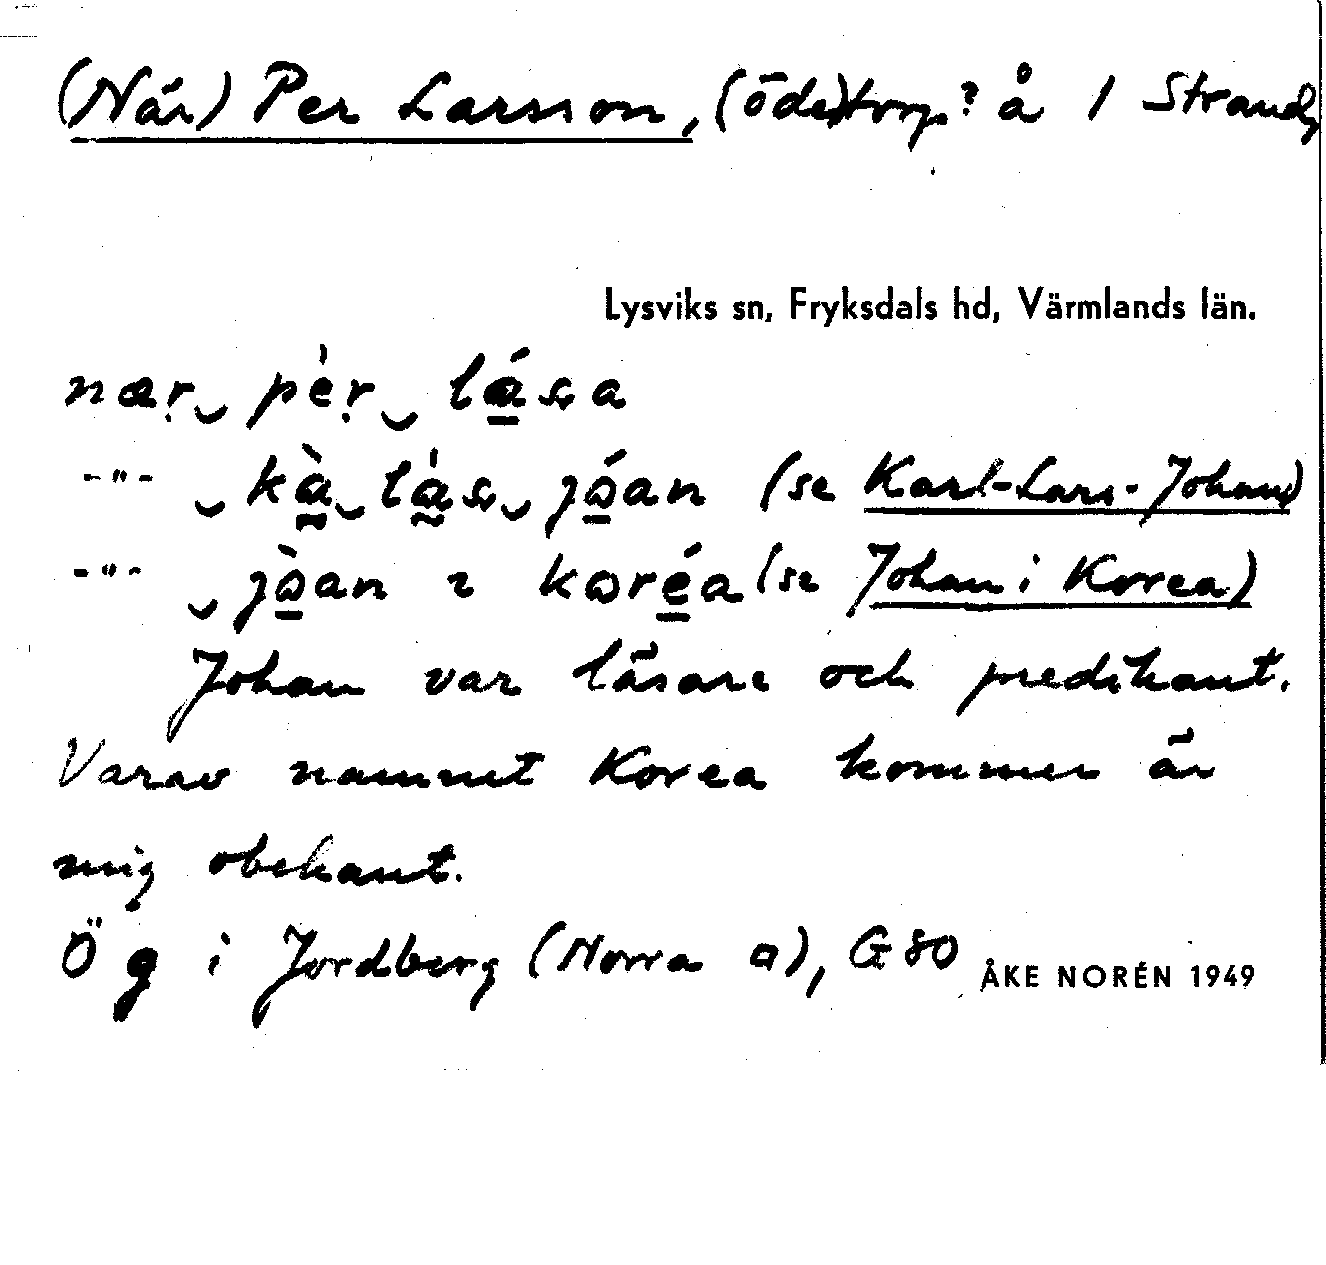 (När) Per Larsson, (öde)torp? å 1 Strand,
Lysviks sn, Fryksdals hd, Värmlands län.
næṛ‿ pèṛ‿ lása
-"- ‿kà‿làs‿jóan (se Karl-Lars-Johans)
-"- ‿jòan ı koréa (se Johan i Korea)
Johan var läsare och predikant.
Varav namnet Korea kommer är
mig obekant.
Ög i Jordberg (Norra ¤), G 80
ÅKE NORÉN 1949